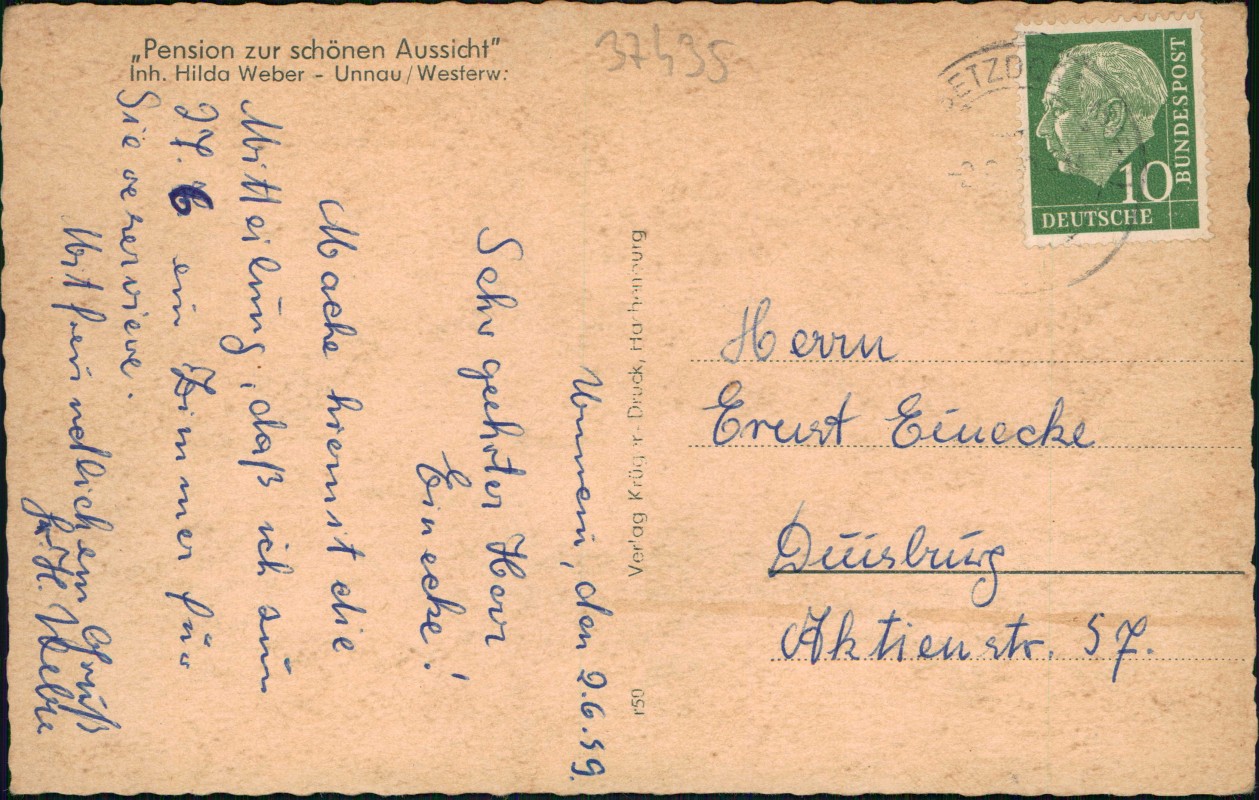 „Pension zur schönen Aussicht”
Inh. Hilda Weber - Unnau/Westerw:
37435
BETZDO
10
DEUTSCHE
BUNDESPOST
Unnau, den 2.6.59
Sehr geehrter Herr
Einecke!
Mache hiermit die
Mitteilung, daß ich zum
27.6 ein Zimmer für
Sie reserviere.
Mit freundlichem Gruß
Fr. H. Weber
Verlag Krüger-Druck, Hachenburg
159
Herrn
Ernst Einecke
Duisburg
Aktienstr. 57.